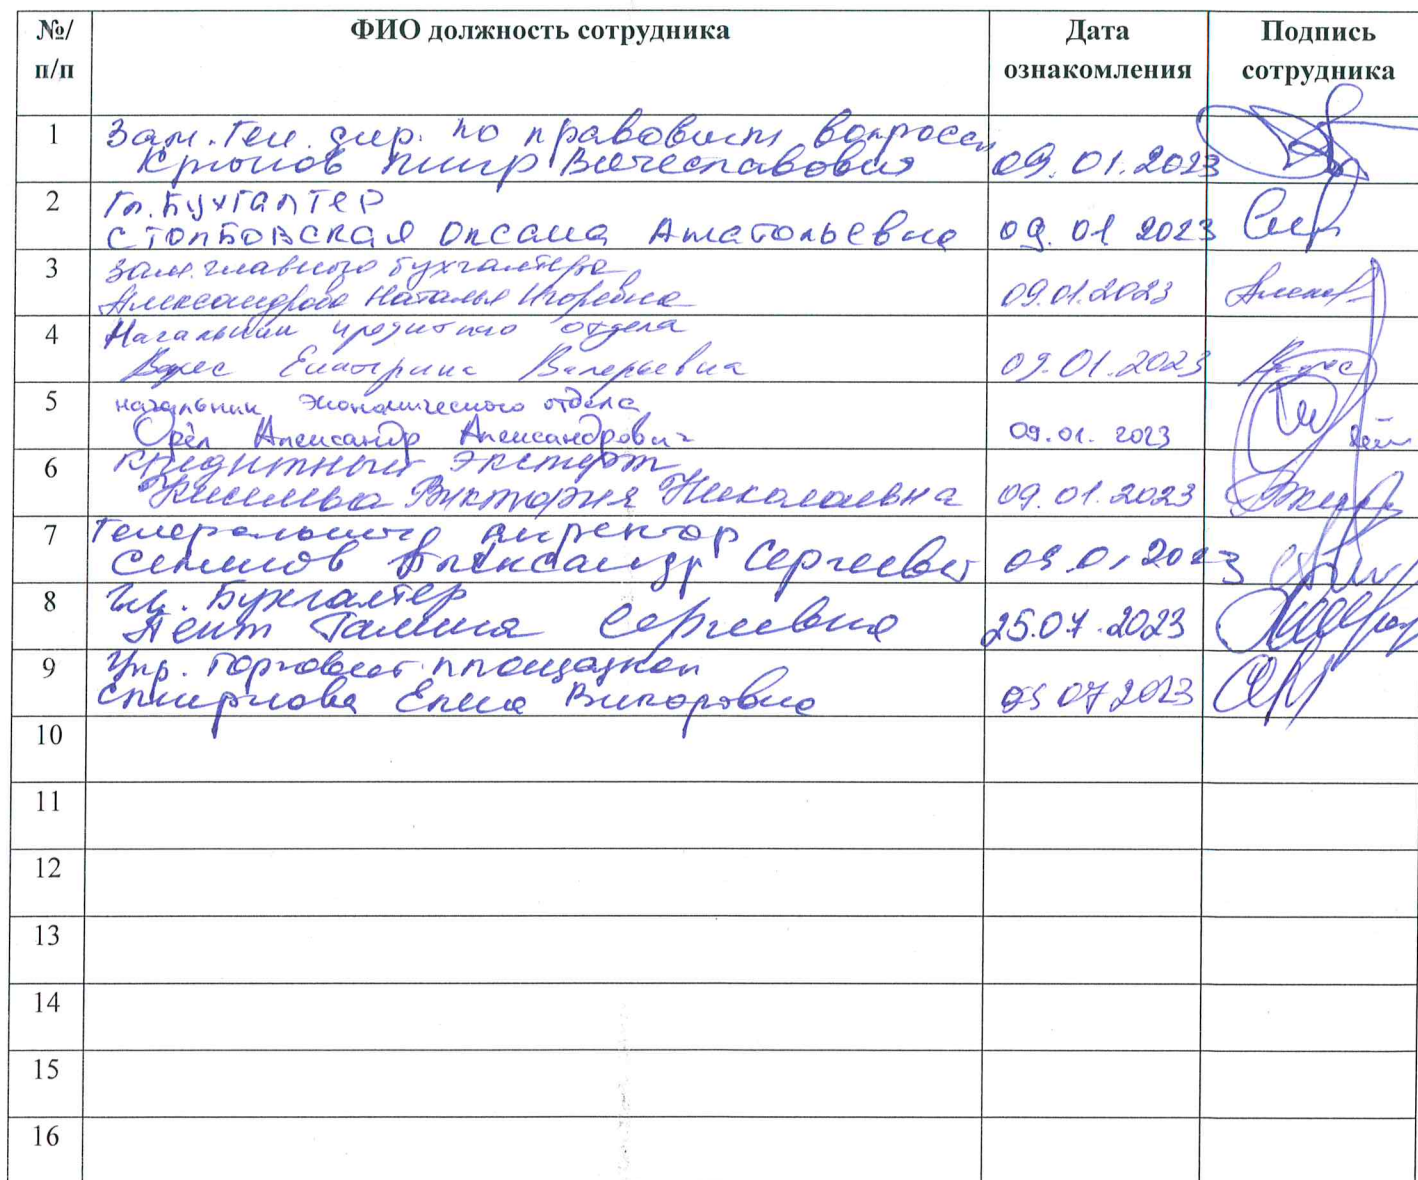 №/ п/п ФИО должность сотрудника Дата ознакомления Подпись сотрудника
1 Зам. Ген. дир. по правовым вопросам
Вячеславович 09.01.2023
2 Гл. Бухгалтер
Столбовская Оксана Анатольевна 09.01 2023
3 Зам. главного бухгалтера
Александрова Наталья Игоревна 09.01.2023
4 Начальник кредитного отдела
Екатерина Валерьевна 09.01.2023
5 начальник экономического отдела
Орёл Александр Александрович 09.01. 2023
6 кредитный эксперт
Виктория Николаевна 09.01.2023
7 Генеральный директор
Александр Сергеевич 2023
8 Гл. Бухгалтер
Галина Сергеевна 25.07.2023
9 Упр. торговой площадкой
Смирнова Елена Викторовна 07 2023
10
11
12
13
14
15
16